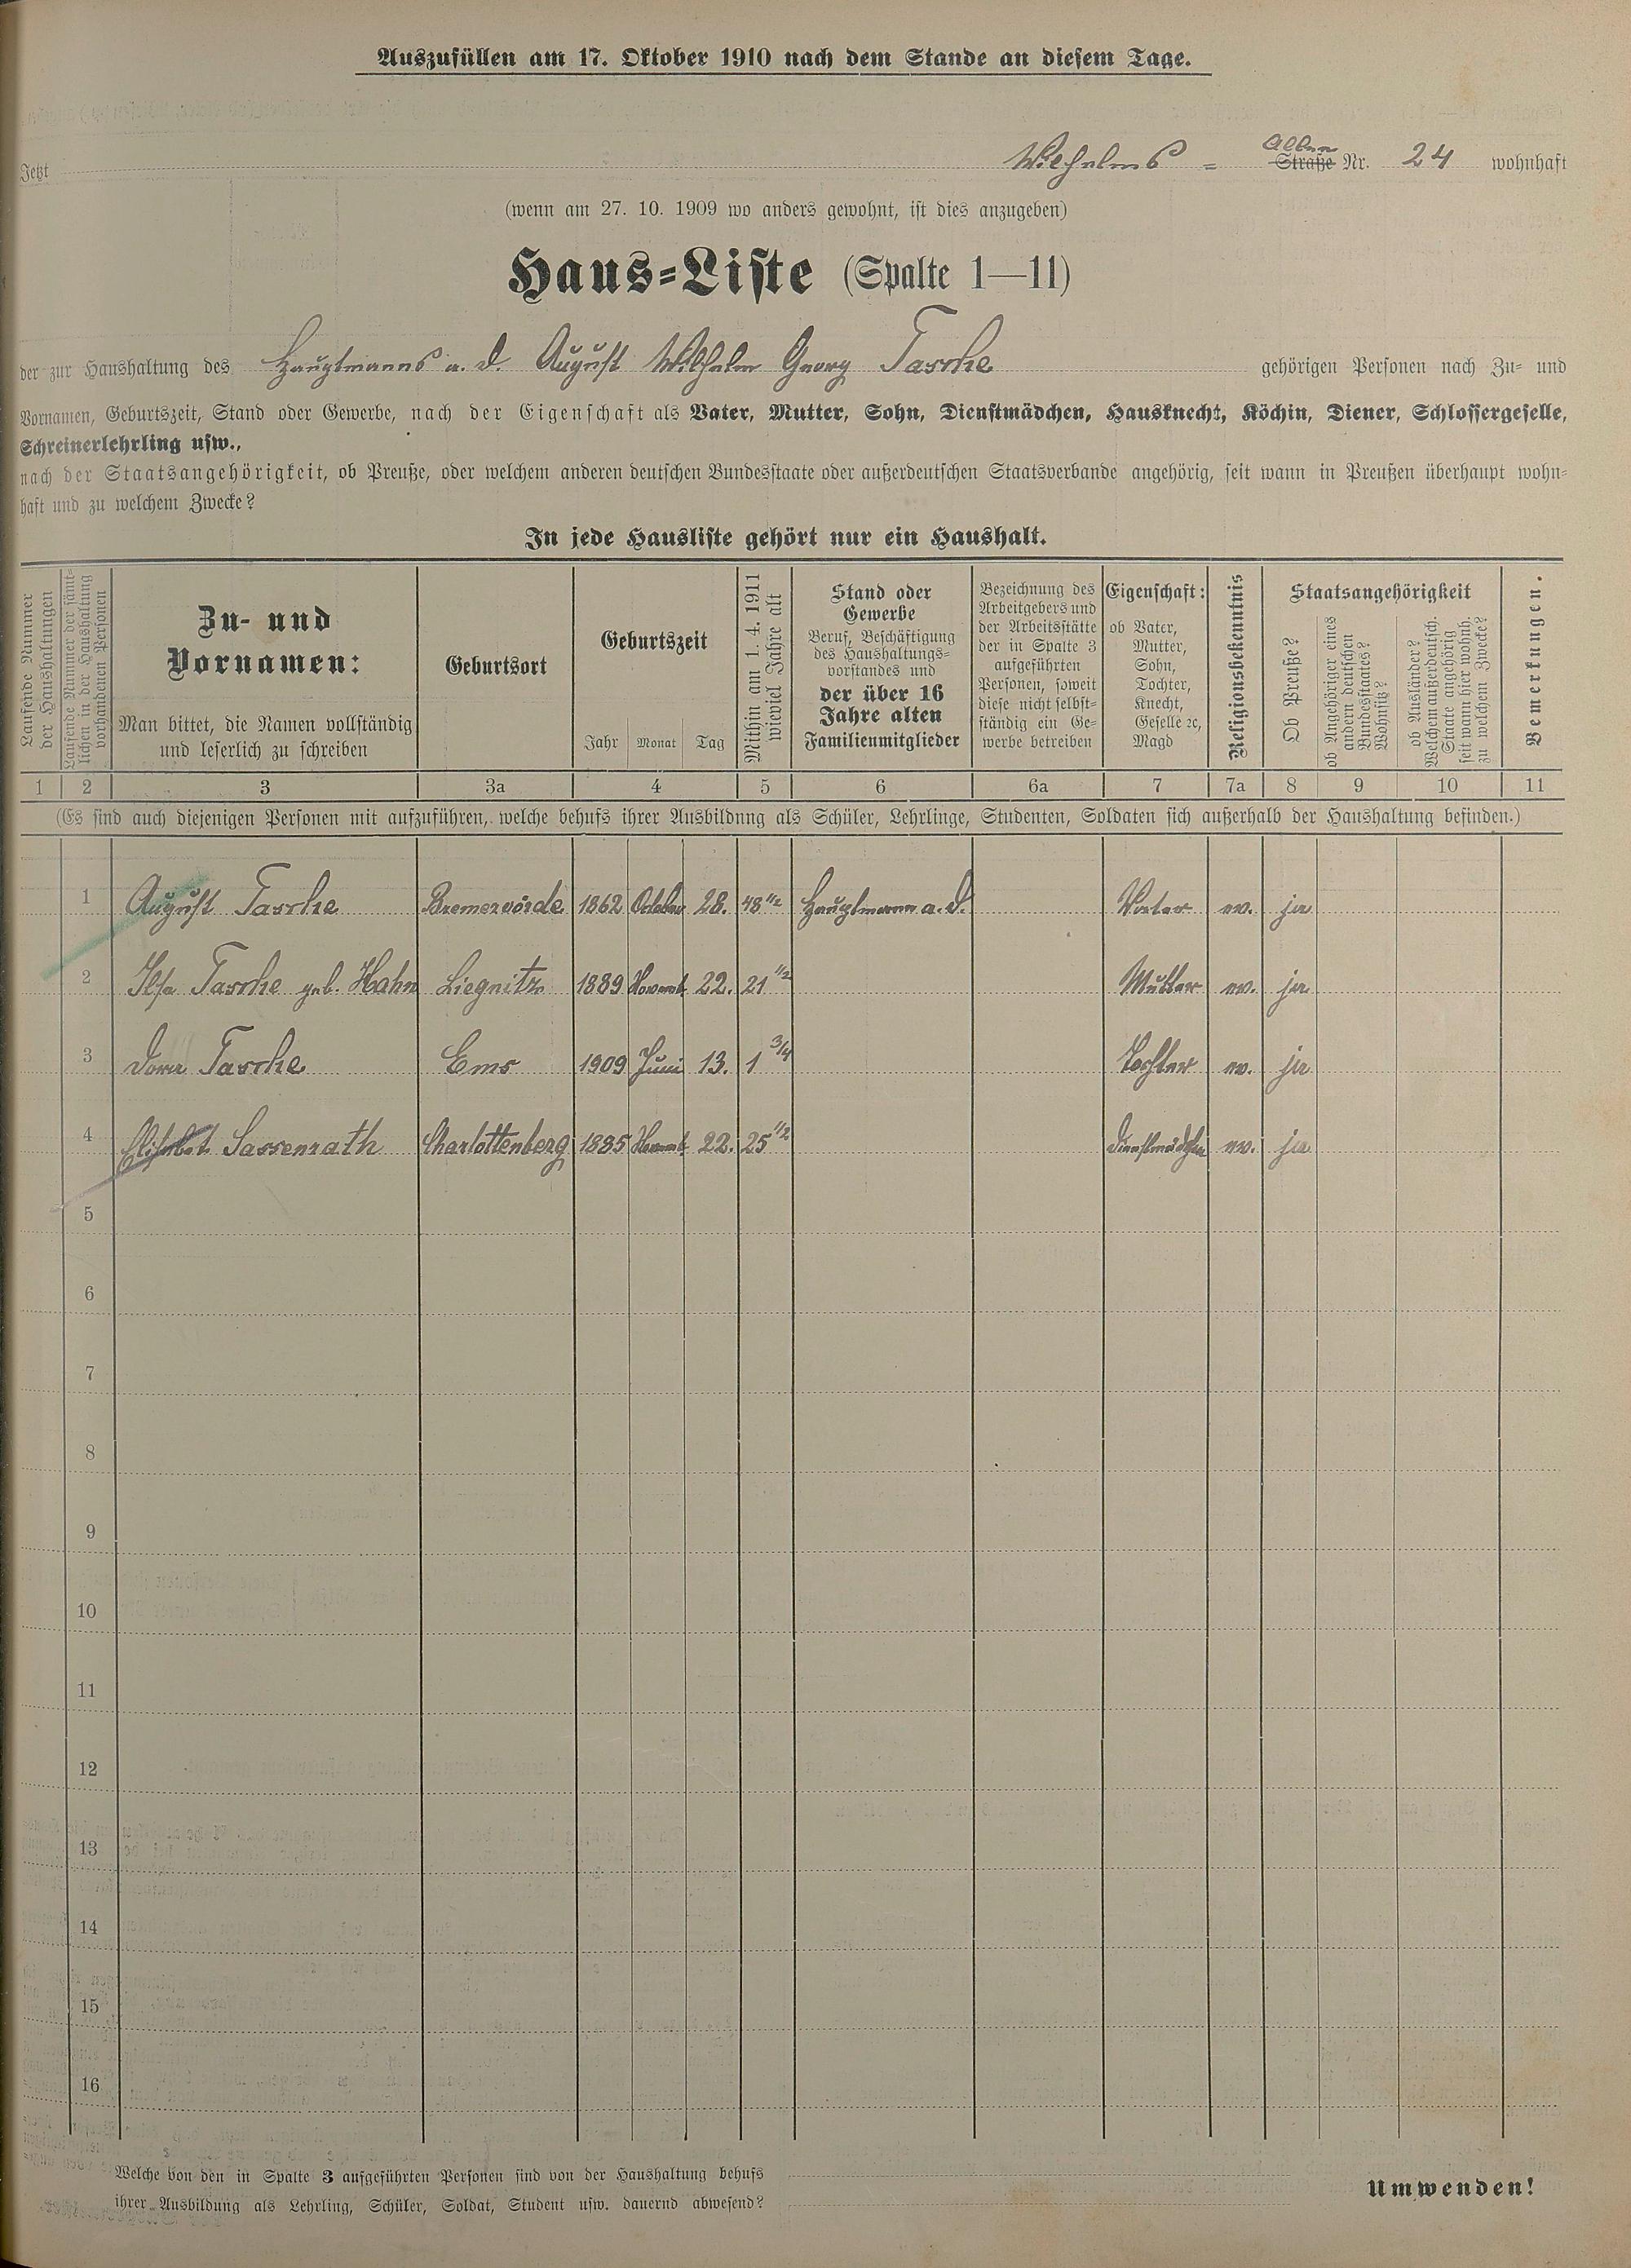 Auszufüllen am 17. Oktober 1910 nach dem Stande an diesem Tage.
Jetzt Wilhelms = Allee Straße Nr. 24 wohnhaft
(wenn am 27. 10. 1909 wo anders gewohnt, ist dies anzugeben)
Haus-Liste (Spalte 1—11)
der zur Haushaltung des Hauptmanns a. D. August Wilhelm Georg Tasche gehörigen Personen nach Zu- und
Vornamen, Geburtszeit, Stand oder Gewerbe, nach der Eigenschaft als Vater, Mutter, Sohn, Dienstmädchen, Hausknecht, Köchin, Diener, Schlossergeselle,
Schreinerlehrling usw.,
nach der Staatsangehörigkeit, ob Preuße, oder welchem anderen deutschen Bundesstaate oder außerdeutschen Staatsverbande angehörig, seit wann in Preußen überhaupt wohn-
haft und zu welchem Zwecke?
In jede Hausliste gehört nur ein Haushalt.
Laufende Nummer
der Haushaltungen
Laufende Nummer der sämt-
lichen in der Haushaltung
vorhandenen Personen
Zu- und
Vornamen:
Man bittet, die Namen vollständig
und leserlich zu schreiben
Geburtsort
Geburtszeit
Jahr Monat Tag
Mithin am 1. 4. 1911
wieviel Jahre alt
Stand oder
Gewerbe
Beruf, Beschäftigung
des Haushaltungs-
vorstandes und
der über 16
Jahre alten
Familienmitglieder
Bezeichnung des
Arbeitgebers und
der Arbeitsstätte
der in Spalte 3
aufgeführten
Personen, soweit
diese nicht selbst-
ständig ein Ge-
werbe betreiben
Eigenschaft:
ob Vater,
Mutter,
Sohn,
Tochter,
Knecht,
Geselle ꝛc,
Magd
Religionsbekenntnis
Staatsangehörigkeit
Ob Preuße?
ob Angehöriger eines
andern deutschen
Bundesstaates?
Wohnsitz?
ob Ausländer?
Welchem außerdeutsch.
Staate angehörig
seit wann hier wohnh.
zu welchem Zwecke?
Bemerkungen.
1 2 3 3a 4 5 6 6a 7 7a 8 9 10 11
(Es sind auch diejenigen Personen mit aufzuführen, welche behufs ihrer Ausbildung als Schüler, Lehrlinge, Studenten, Soldaten sich außerhalb der Haushaltung befinden.)
1 August Tasche Bremervörde 1862 October 28. 48 1/2 Hauptmann a. D. Vater ev. ja
2 Ilse Tasche geb. Hahn Liegnitz 1889 Novemb 22. 21 1/2 Mutter ev. ja
3 Dora Tasche Ems 1909 Juni 13. 1 3/4 Tochter ev. ja
4 Elisabet Sassenrath Charlottenberg 1885 Novemb 22. 25 1/2 Dienstmädchen ev. ja
5
6
7
8
9
10
11
12
13
14
15
16
Welche von den in Spalte 3 aufgeführten Personen sind von der Haushaltung behufs
ihrer Ausbildung als Lehrling, Schüler, Soldat, Student usw. dauernd abwesend?
Umwenden!